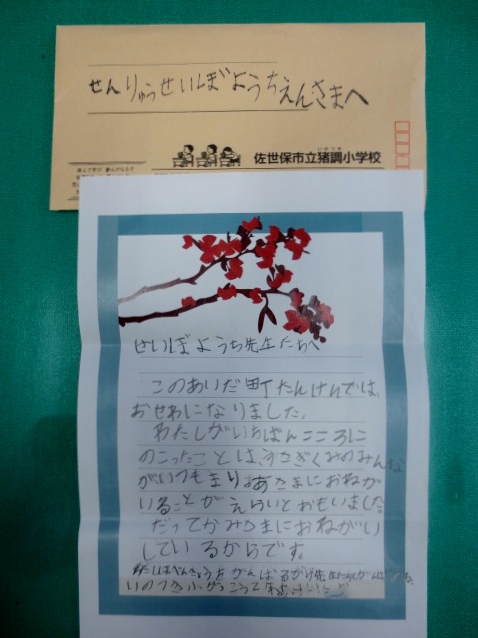 せんりゅうせいぼようちえんさまへ
いつき
佐世保市立猪調小学校
せいぼようち先生たちへ
このあいだ町たんけんでは、
おせわになりました。
わたしがいちばんこころに
のこったことは、うさぎぐみのみんな
がいつもまりあさまにおねが
いることがえらいとおもいました。
だってかみさまにおねがい
しているからです。
わたしはべんきょうをがんばるがら先生たち